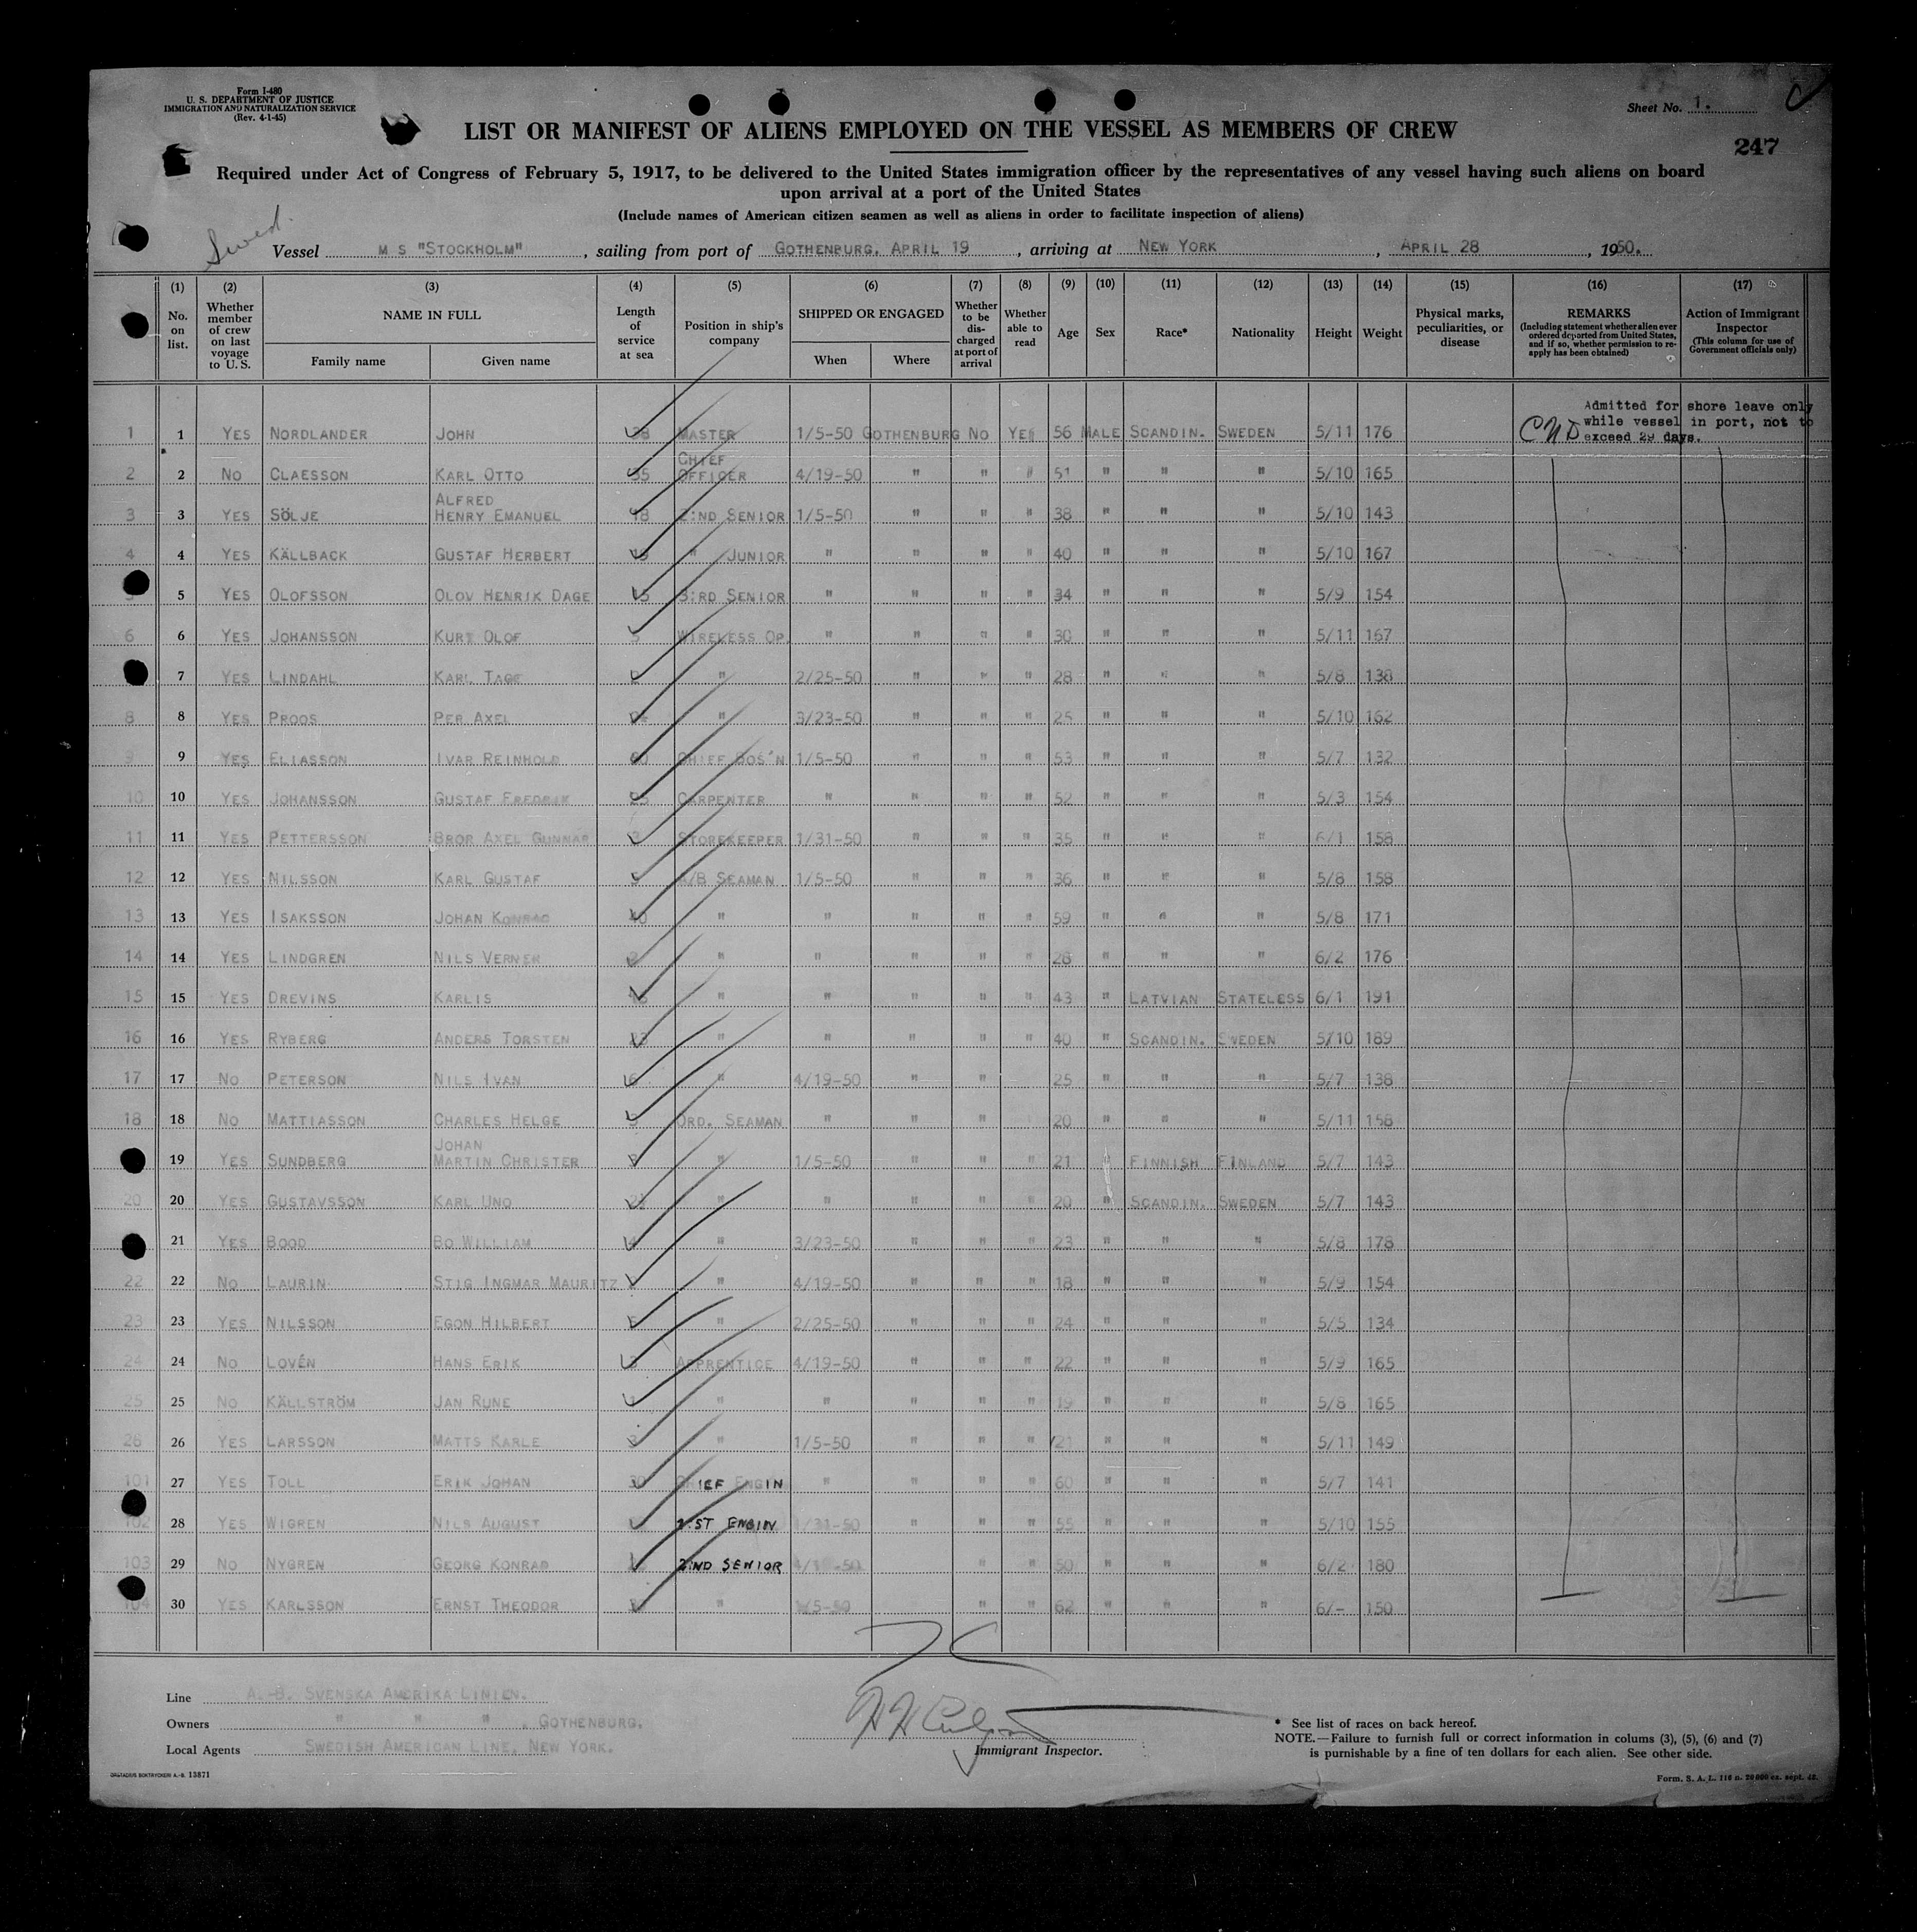 Form I-480
U. S. DEPARTMENT OF JUSTICE
IMMIGRATION AND NATURALIZATION SERVICE
(Rev. 4-1-45)
Sheet No. 1.
LIST OR MANIFEST OF ALIENS EMPLOYED ON THE VESSEL AS MEMBERS OF CREW
247
Required under Act of Congress of February 5, 1917, to be delivered to the United States immigration officer by the representatives of any vessel having such aliens on board
upon arrival at a port of the United States
(Include names of American citizen seamen as well as aliens in order to facilitate inspection of aliens)
Swed.
Vessel M S "STOCKHOLM", sailing from port of GOTHENBURG, APRIL 19, arriving at NEW YORK, APRIL 28, 1950.
(1) (2) (3) (4) (5) (6) (7) (8) (9) (10) (11) (12) (13) (14) (15) (16) (17)
No. on list. Whether member of crew on last voyage to U. S. NAME IN FULL Family name Given name Length of service at sea Position in ship's company SHIPPED OR ENGAGED When Where Whether to be discharged at port of arrival Whether able to read Age Sex Race* Nationality Height Weight Physical marks, peculiarities, or disease REMARKS (Including statement whether alien ever ordered deported from United States, and if so, whether permission to reapply has been obtained) Action of Immigrant Inspector (This column for use of Government officials only)
Admitted for shore leave only
while vessel in port, not to
exceed 29 days.
1 1 YES NORDLANDER JOHN 38 MASTER 1/5-50 GOTHENBURG NO YES 56 MALE SCANDIN. SWEDEN 5/11 176
2 2 NO CLAESSON KARL OTTO 35 CHIEF OFFICER 4/19-50 " " " 51 " " " 5/10 165
3 3 YES SÖLJE ALFRED HENRY EMANUEL 18 2:ND SENIOR 1/5-50 " " " 38 " " " 5/10 143
4 4 YES KÄLLBACK GUSTAF HERBERT " JUNIOR " " " " 40 " " " 5/10 167
5 YES OLOFSSON OLOV HENRIK DAGE 15 3:RD SENIOR " " " " 34 " " " 5/9 154
6 6 YES JOHANSSON KURT OLOF 5 WIRELESS OP. " " " " 30 " " " 5/11 167
7 YES LINDAHL KARL TAGE " 2/25-50 " " " 28 " " " 5/8 138
8 8 YES PROOS PER AXEL " 3/23-50 " " " 25 " " " 5/10 162
9 9 YES ELIASSON IVAR REINHOLD CHIEF BOS'N 1/5-50 " " " 53 " " " 5/7 132
10 10 YES JOHANSSON GUSTAF FREDRIK CARPENTER " " " " 52 " " " 5/3 154
11 11 YES PETTERSSON BROR AXEL GUNNAR STOREKEEPER 1/31-50 " " " 35 " " " 6/1 158
12 12 YES NILSSON KARL GUSTAF A/B SEAMAN 1/5-50 " " " 36 " " " 5/8 158
13 13 YES ISAKSSON JOHAN KONRAD 40 " " " " " 59 " " " 5/8 171
14 14 YES LINDGREN NILS VERNER " " " " " 28 " " " 6/2 176
15 15 YES DREVINS KARLIS " " " " " 43 " LATVIAN STATELESS 6/1 191
16 16 YES RYBERG ANDERS TORSTEN 23 " " " " " 40 " SCANDIN. SWEDEN 5/10 189
17 17 NO PETERSON NILS IVAN 6 " 4/19-50 " " 25 " " " 5/7 138
18 18 NO MATTIASSON CHARLES HELGE ORD. SEAMAN " " " 20 " " " 5/11 158
19 YES SUNDBERG JOHAN MARTIN CHRISTER " 1/5-50 " " " 21 " FINNISH FINLAND 5/7 143
20 20 YES GUSTAVSSON KARL UNO " " " " " 20 " SCANDIN. SWEDEN 5/7 143
21 YES BOOD BO WILLIAM 4 " 3/23-50 " " " 23 " " " 5/8 178
22 22 NO LAURIN STIG INGMAR MAURITZ " 4/19-50 " " " 18 " " " 5/9 154
23 23 YES NILSSON EGON HILBERT " 2/25-50 " " " 24 " " " 5/5 134
24 24 NO LOVÉN HANS ERIK 3 APPRENTICE 4/19-50 " " " 22 " " " 5/9 165
25 25 NO KÄLLSTRÖM JAN RUNE 1 " " " " " 19 " " " 5/8 165
26 26 YES LARSSON MATTS KARLE " 1/5-50 " " " 21 " " " 5/11 149
101 27 YES TOLL ERIK JOHAN 30 CHIEF ENGIN " " " " 60 " " " 5/7 141
102 28 YES WIGREN NILS AUGUST 1:ST ENGIN 1/31-50 " " " 55 " " " 5/10 155
103 29 NO NYGREN GEORG KONRAD 2:ND SENIOR " " 50 " " " 6/2 180
104 30 YES KARLSSON ERNST THEODOR " 1/5-50 " " 62 " " " 6/- 150
Line A.-B. SVENSKA AMERIKA LINIEN.
Owners " " " , GOTHENBURG.
Local Agents SWEDISH AMERICAN LINE, NEW YORK.
Immigrant Inspector.
* See list of races on back hereof.
NOTE.—Failure to furnish full or correct information in colums (3), (5), (6) and (7)
is punishable by a fine of ten dollars for each alien. See other side.
BOKTRYCKERI A.-B. 13871
Form. S. A. L. 116 n. 20 000 ex. sept. 48.